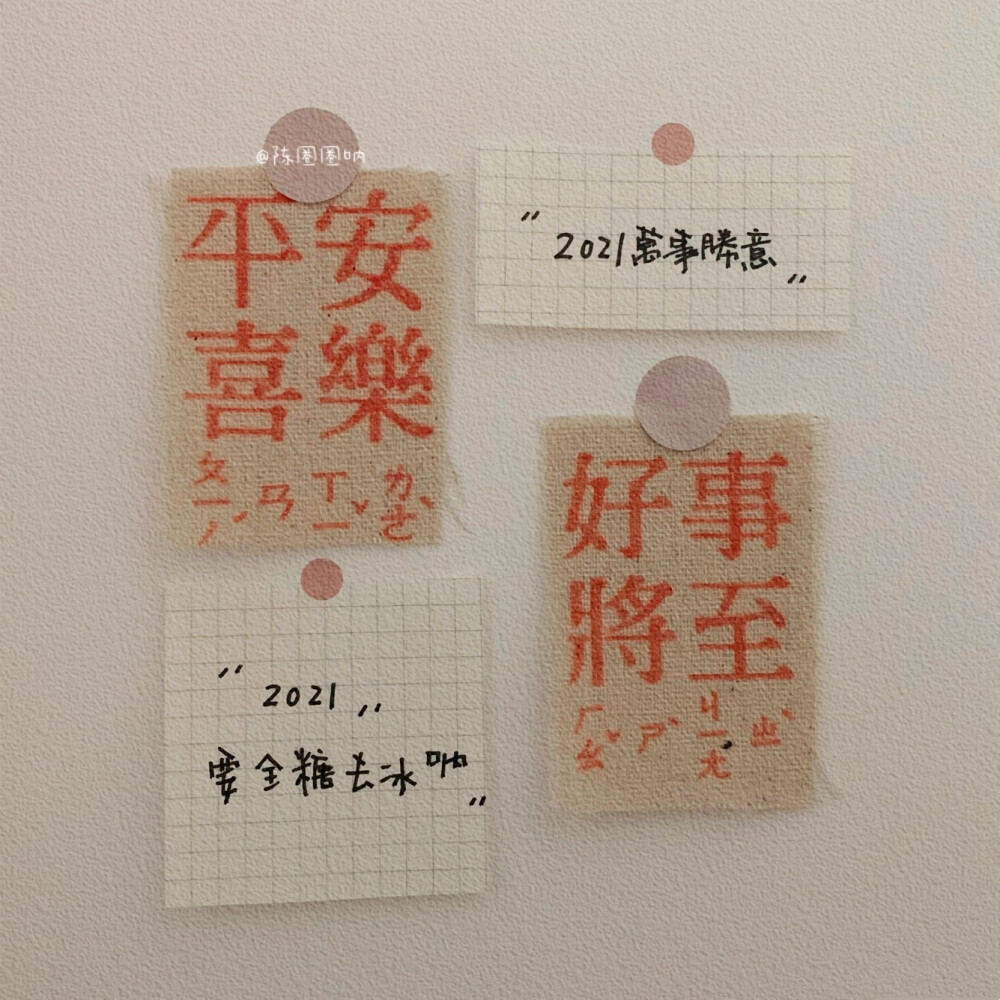 @陈圈圈呐
平安
喜樂
ㄆㄧˊ ㄢ ㄒㄧˇ ㄌㄜˋ
"2021萬事勝意"
"2021"
要全糖去冰呐"
好事
將至
ㄏㄠˇ ㄕˋ ㄐㄧㄤ ㄓˋ